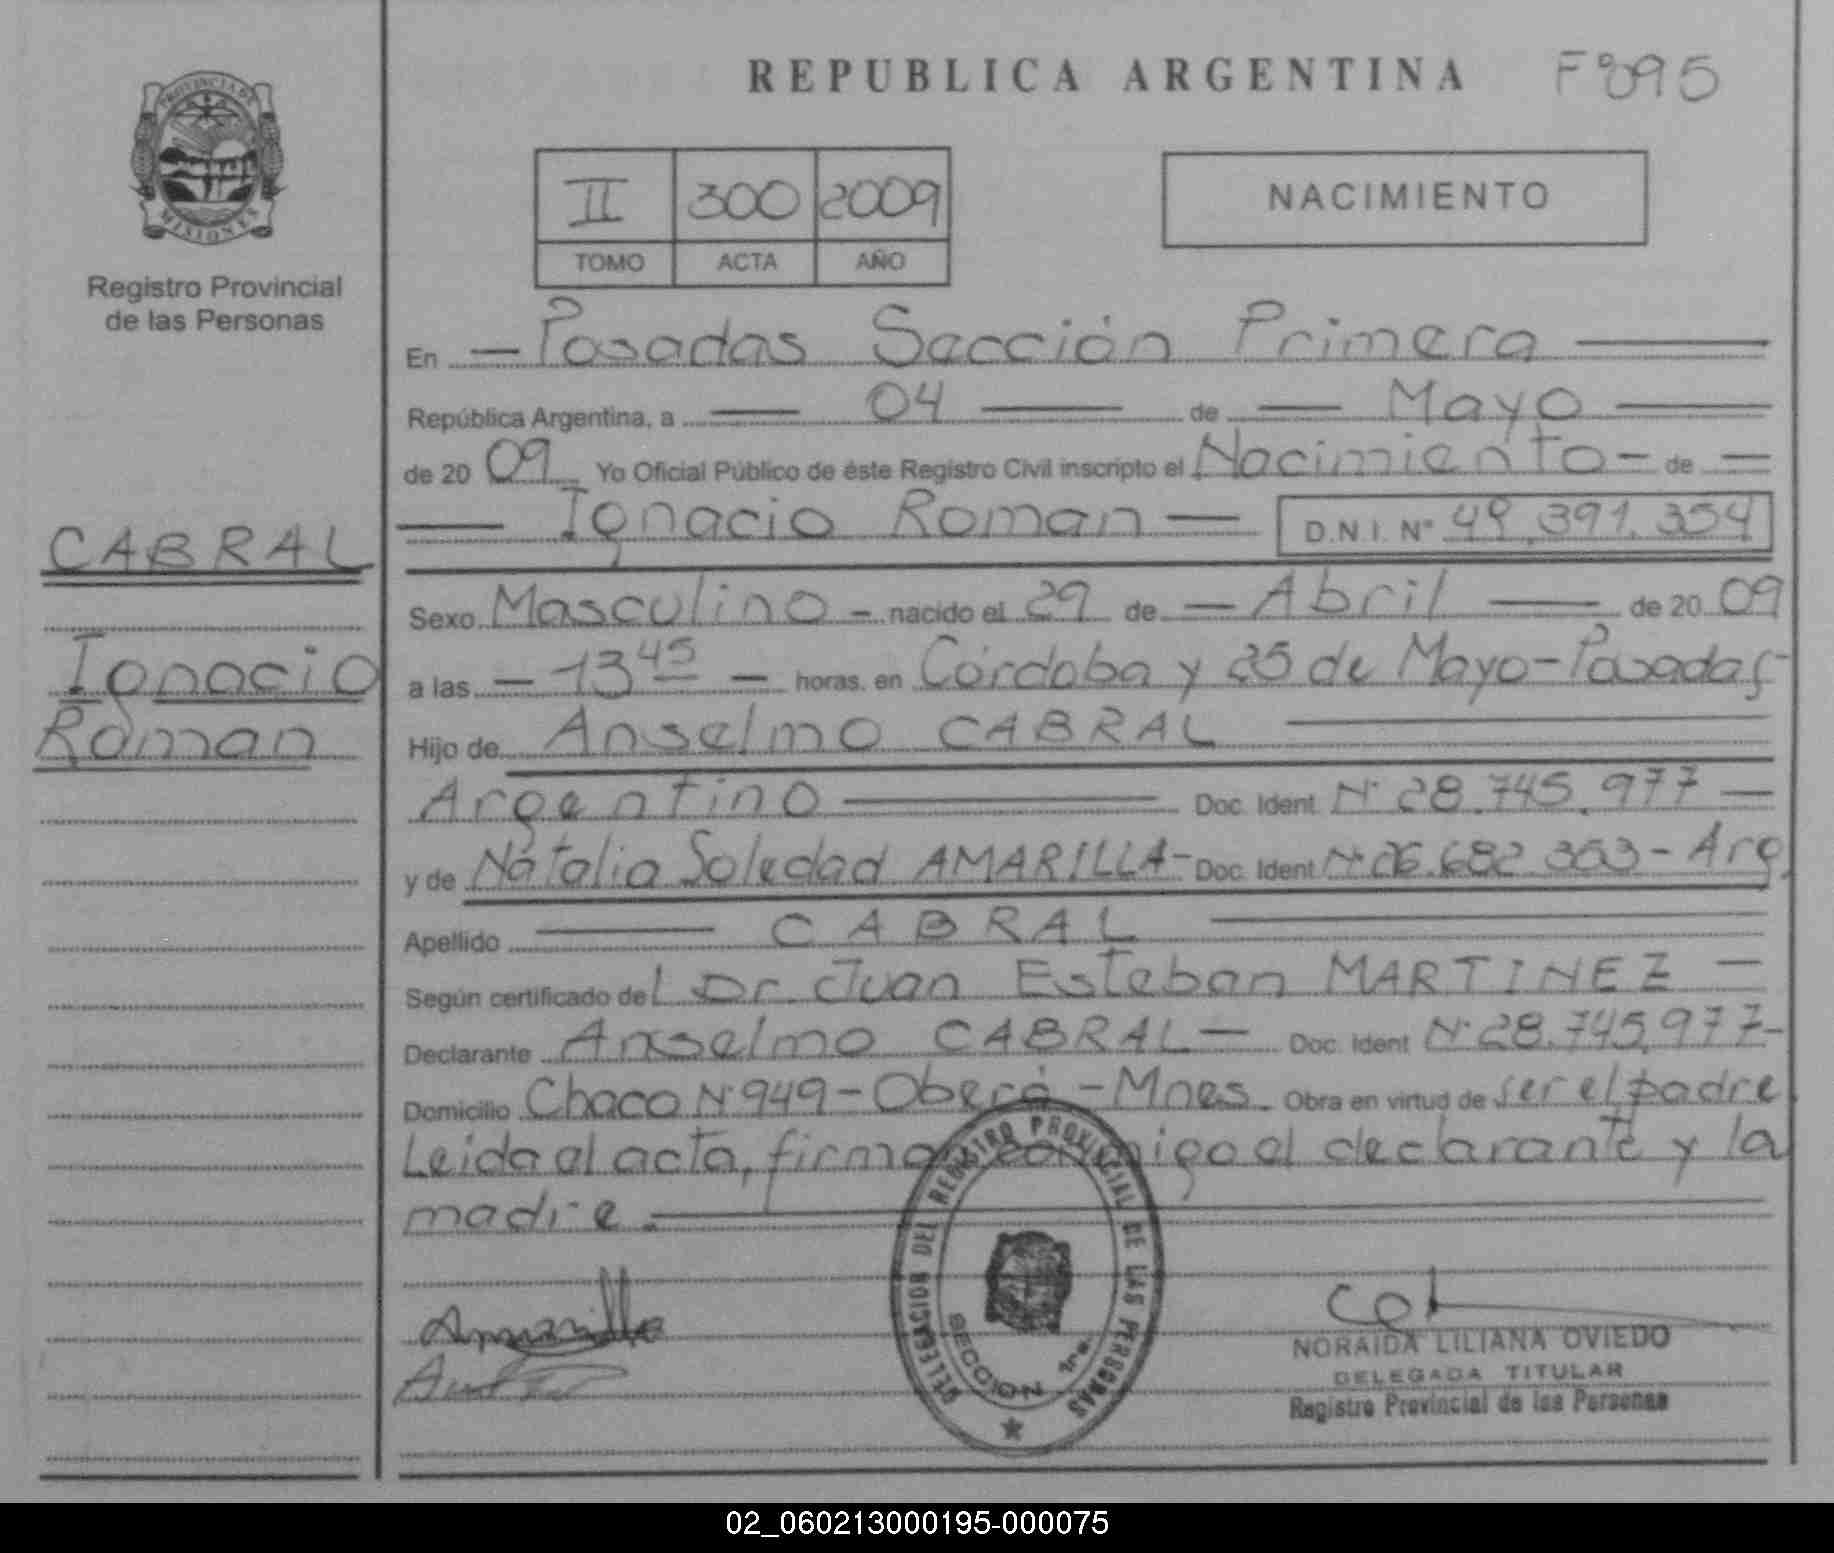 PROVINCIA DE
MISIONES
Registro Provincial
de las Personas
CABRAL
Ignacio
Roman
REPUBLICA ARGENTINA Fº 095
II 300 2009
TOMO ACTA AÑO
NACIMIENTO
En Posadas Sección Primera
República Argentina, a 04 de Mayo
de 20 09 Yo Oficial Público de éste Registro Civil inscripto el Nacimiento - de
Ignacio Roman D.N.I. Nº 49.391.354
Sexo Masculino - nacido el 29 de Abril de 20 09
a las 13 45 horas, en Córdoba y 25 de Mayo - Posadas -
Hijo de Anselmo CABRAL
Argentino Doc. Ident. Nº 28.745.977
y de Natalia Soledad AMARILLA - Doc. Ident Nº 26.682.353 - Arg.
Apellido CABRAL
Según certificado del Dr. Juan Esteban MARTINEZ
Declarante Anselmo CABRAL - Doc. Ident Nº 28.745.977 -
Domicilio Chaco Nº 949 - Oberá - Mnes. Obra en virtud de ser el padre
Leida el acta, firman conmigo el declarante y la
madre.
DELEGACION DEL REGISTRO PROVINCIAL DE LAS PERSONAS
SECCION 1ra.
Amarilla
NORAIDA LILIANA OVIEDO
DELEGADA TITULAR
Registro Provincial de las Personas
02_060213000195-000075